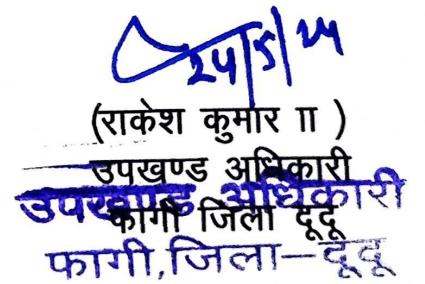 24/5/24
(राकेश कुमार II )
उपखण्ड अधिकारी
उपखण्ड अधिकारी
फागी जिला दूदू
फागी,जिला–दूदू